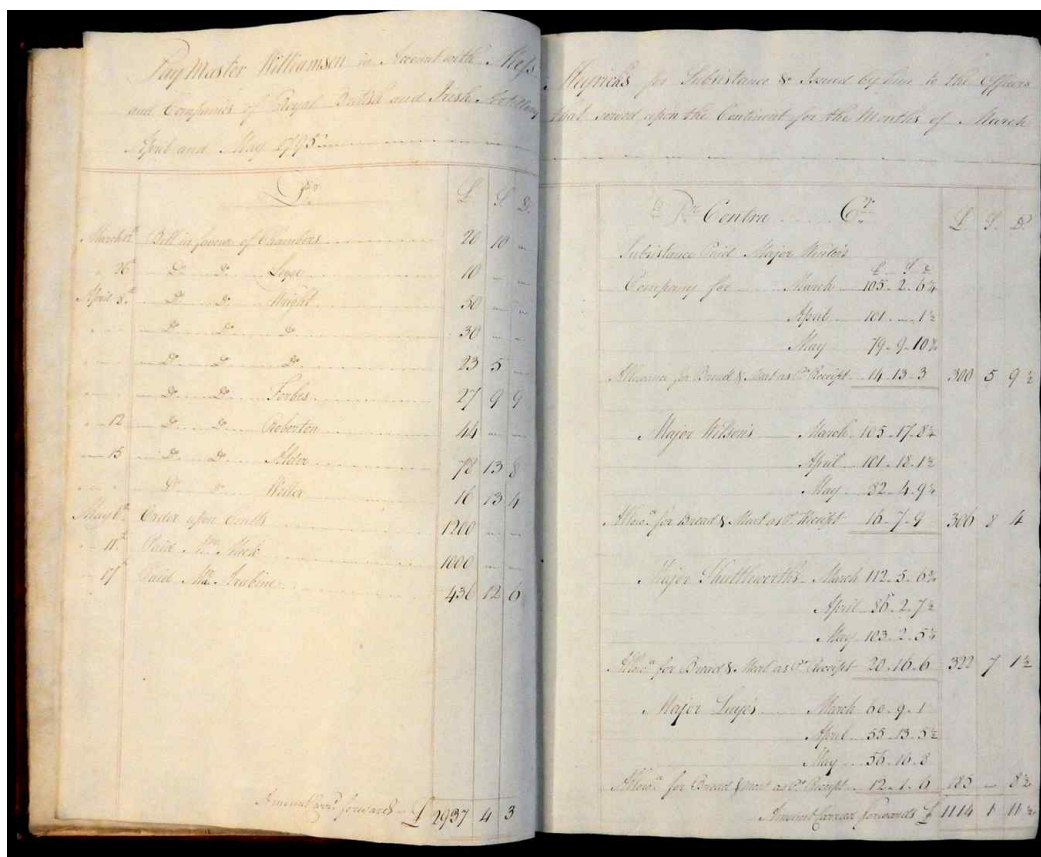 PayMaster Williamson in Account with Mess.
and Companies of Royal British and Irish Artillery
April and May 1795
Dr
£ S. D.
March Bill in favour of Chambers 20 10 -
26 Do Do Legge 10 - -
April 8th Do Do Wright 50 - -
Do Do Do 30 - -
Do Do Do 23 5 -
Do Do Forbes 27 9 9
12 Do Do Roberton 44 - -
15 Do Do Alder 78 13 8
Do Do Weller 16 13 4
May 6th Order upon Coutts 1200 - -
11th Paid 1000 - -
17th Paid Mr Arabin 436 12 6
Amount forwards £ 2937 4 3
Meyricks for Subsistance & Issued by him to the Officers
that served upon the Continent for the Months of March
Pr Contra Cr
£ S. D.
Subsistance Paid Major Winter's
£ S D
Company for March 105 . 2 . 6¼
April 101 . - . 1½
May 79 . 9 . 10¾
Allowance for Bread & Meat as Pr Receipt 14 . 13 . 3 300 5 9½
Major Wilson's March 105 . 17 . 8¼
April 101 . 18 . 1½
May 82 . 4 . 9¼
Allowe for Bread & Meat as Pr Receipt 16 . 7 . 9 306 8 4
Major Shuttleworths March 112 . 5 . 6¾
April 86 . 2 . 7½
May 103 . 2 . 5¼
Allowe for Bread & Meat as Pr Receipt 20 . 16 . 6 322 7 1½
Major Laye's March 60 . 9 . 1
April 55 . 13 . 5½
May 56 . 16 . 8
Allowe for Bread & Meat as Pr Receipt 12 . 1 . 6 185 - 8½
Amount carried forwards £ 1114 1 11½